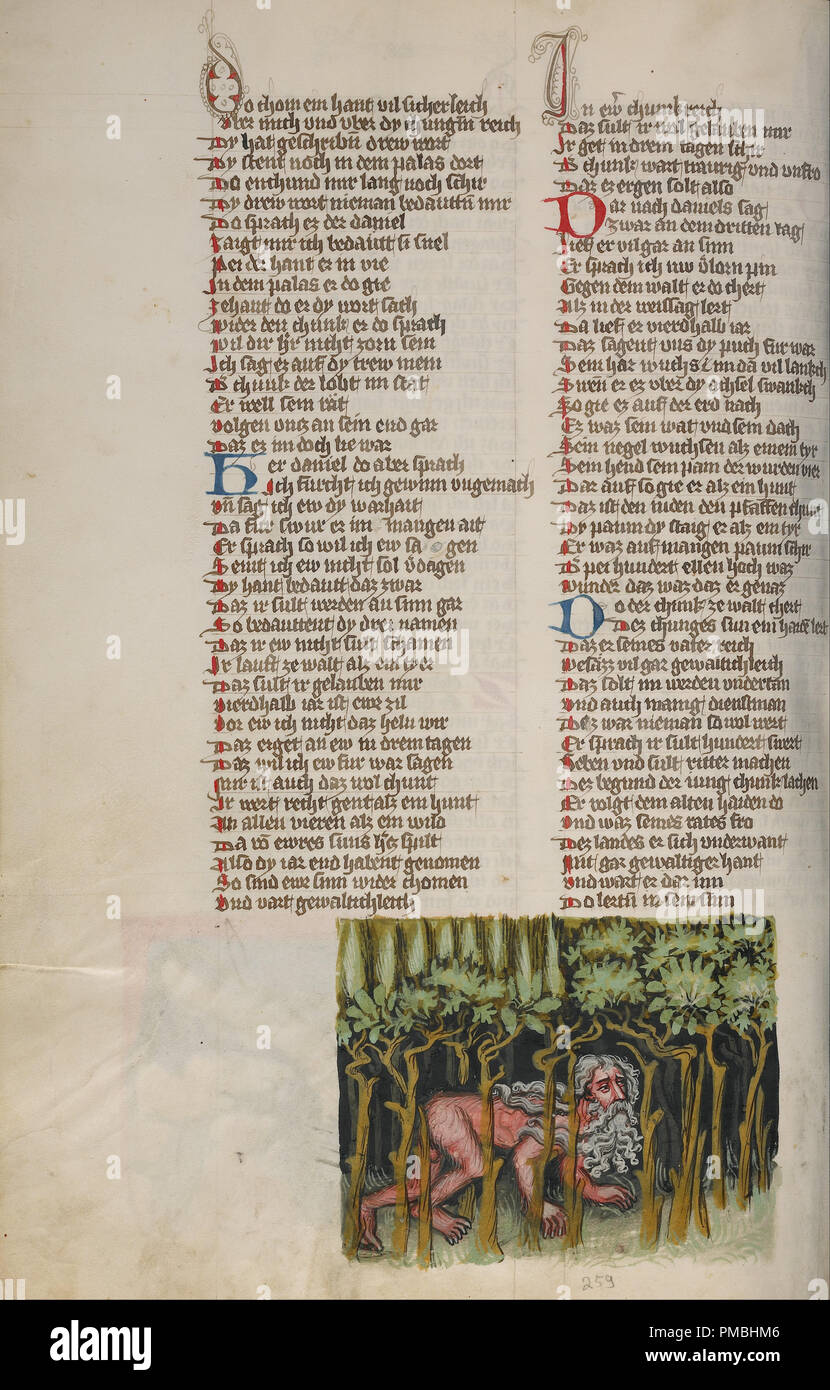 So chom ein hant vil sicherleich
Vber mich vnd vber dy iungñ reich
Dy hat geschribñ drew wort
Dy stent noch in dem palas dort
Do enchund mir lang noch schir
Dy drew wort nieman bedauttñ mir
Do sprach ez der daniel
Zaigt mir ich bedautt si snel
Pei der hant er in vie
In dem palas er do gie
Zehant do er dy wort sach
Wider den chunk er do sprach
Wil dir h̃r nicht zorn sein
Ich sag ez auf dy trew mein
D chunk der lobt im stat
Er well sein rat
Volgen vncz an sein end gar
Daz ez im doch lie war
Her daniel do aber sprach
Ich furcht ich gewinn vngemach
Vñ sag ich ew dy warhait
Da fur swur er im mangen ait
Er sprach so wil ich ew sa gen
Seint ich ew nicht sol v̉dagen
Dy hant bedautt daz zwar
Daz ir sult werden an sinn gar
So bedauttent dy drei namen
Daz ir ew nicht sult schamen
Ir lauft ze walt alz ein tyer
Daz sult ir gelauben mir
Vierdhalb iar ist ewr zil
Vor ew ich nicht daz heln wil
Daz erget an ew in drein tagen
Daz wil ich ew fur war sagen
Mir ist auch daz wol chunt
Ir wert recht gent alz ein hunt
An allen vieren alz ein wild
Da vō ewres sinns h̃cz spilt
Also dy iar end habent genomen
So sind ewr sinn wider chomen
Vnd vart gewaltichleich
In ew̃ chunkreich
Daz sult ir wol gelauben mir
Ir get in drein tagen schir
D chunk wart traurig vnd vnfro
Daz ez ergen solt also
Dar nach daniels sag
Zwar an dem dritten tag
Lief er vil gar an sinn
Er sprach ich nw v̉lorn pin
Gegen dem walt er do chert
Alz in der weissag lert
Da lief er vierdhalb iar
Daz sagent vns dy puch fur war
Sein har wuchs im dā vil lankch
Swen er ez vber dy achsel swankch
So gie ez auf der erd nach
Ez waz sein wat vnd sein dach
Sein negel wuchsen alz einem tyr
Sein hend sein pain der wurden vier
Dar auf so gie er alz ein hunt
Daz ist den iuden den pfaffen chunt
Dy paum dy staig er alz ein tyr
Er waz auf mangen paum schir
D pei hundert ellen hoch waz
Wunder daz waz daz er genaz
Do der chunk ze walt chert
Dez chunges sun ein haide lert
Daz er seines vater reich
Besäzz vil gar gewaltichleich
Daz solt im werden vndertan
Vnd auch manig dienstman
Dez war nieman so wol wert
Er sprach ir sult hundert swert
Geben vnd sult ritter machen
Dez begund der iung chunk lachen
Er volgt dem alten haiden do
Vnd waz seines rates fro
Dez landes er sich vnderwant
Mit gar gewaltiger hant
Vnd wart er dar inn
Do lertñ in sein sinn
259
alamy
PMBHM6
www.alamy.com